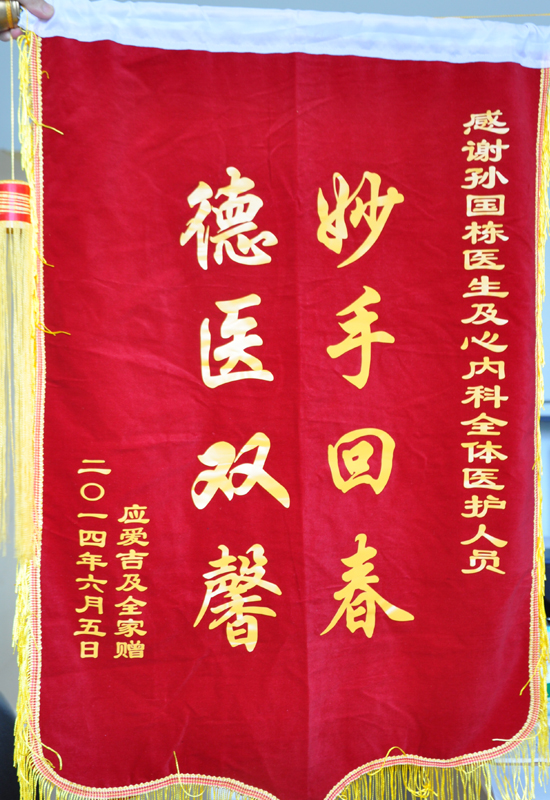 感谢孙国栋医生及心内科全体医护人员
妙手回春
德医双馨
应爱吉及全家赠
二〇一四年六月五日